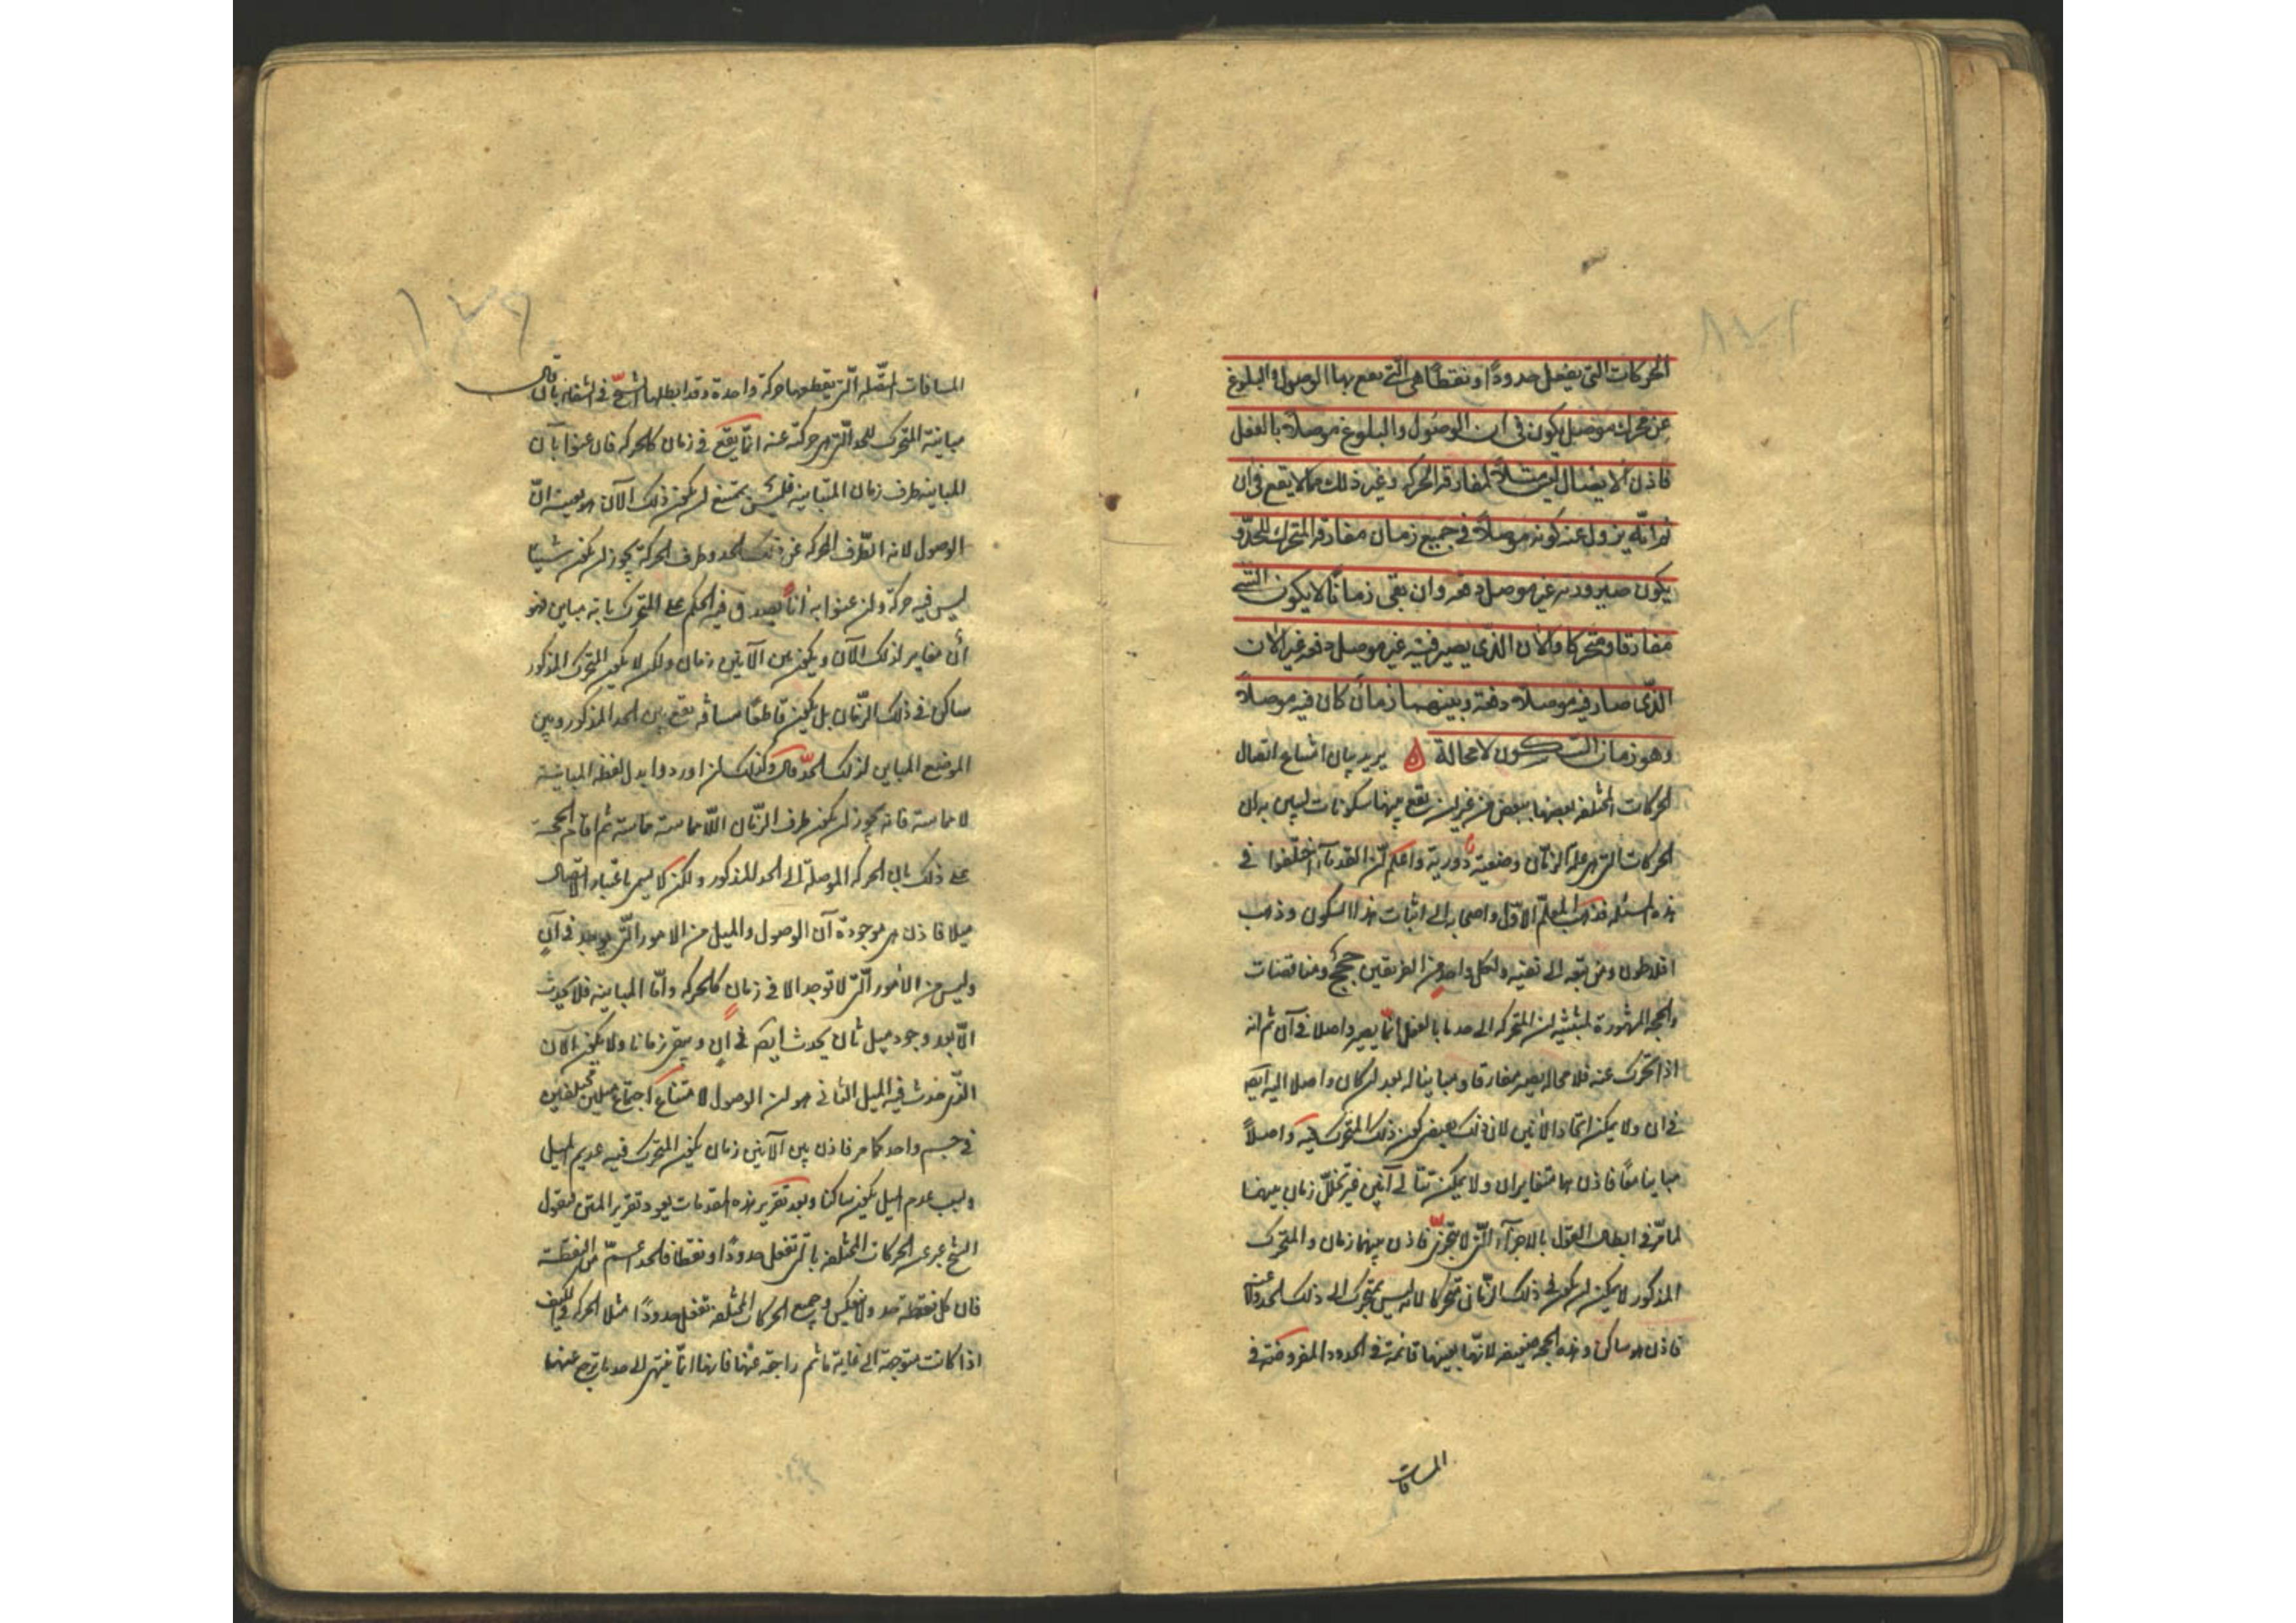 الحركات التي يفعل حدودًا ونقطًا هي التي يقع بها الوصول والبلوغ
عن محرك موصل يكون في ان الوصول والبلوغ موصلاً بالفعل
فاذن الايصال ليس مثل المفارقة والحركة وغير ذلك مما لا يقع في ان
ثم انه يزول عنه كونه موصلاً في جميع زمان مفارقة المتحرك للحد و
يكون صيرورته غير موصل دفعه وان بقى زمانًا لا يكون الشئ
مفارقا ومتحركا والان الذي يصير فيه غير موصل دفعه غير الان
الذي صار فيه موصلاً دفعة وبينهما زمان كان فيه موصلاً
وهو زمان السكون لا محالة يريد بيان امتناع اتصال
الحركات المختلفه بعضها ببعض من غير ان يقع بينها سكونات ليبين به ان
الحركات التي هي علة الزمان وضعية دورية واعلم ان القدماء اختلفوا في
هذه المسئله فذهب المعلم الاول واصحابه الى اثبات هذا السكون وذهب
افلاطون ومن تبعه الى نفيه ولكل واحد من الفريقين حجج ومناقضات
والحجه المشهورة لمثبتيه ان المتحرك الى حد ما بالفعل انما يصير واصلا في آن ثم انه
اذا تحرك عنه فلا محاله يصير مفارقا ومباينا له بعد ان كان واصلا اليه ايضا
في ان ولا يمكن اتحاد الانين لان ذلك يقتضي كون ذلك المتحرك فيه واصلاً
مباينا معًا فاذن هما متغايران ولا يمكن تتالى آنين غير تخلل زمان بينهما
لما مر في ابطال القول بالاجزاء التي لا تتجزى فاذن بينهما زمان والمتحرك
المذكور لا يمكن ان يكون في ذلك الزمان متحركا لانه ليس بمتحرك الى ذلك الحد ولا عنه
فاذن هو ساكن وهذه الحجه ضعيفه لانها بعينها قائمة في الحدود المفروضة في
المسافات
المسافات المتصله التي يقطعها حركة واحدة وقد ابطلها الشيخ في الشفاء بان قال
مباينة المتحرك للحد التي هي حركته عنه انما يقع في زمان كالحركه فان عنوا بآن
المباينه طرف زمان المباينه فليس يمتنع ان يكون ذلك الآن هو بعينه ان
الوصول لانه الطرف الحركه عن ذلك الحد وطرف الحركة يجوز ان يكون شيئا
ليس فيه حركة وان عنوا به اناً يصدق فيه الحكم على المتحرك بانه مباين فهو
أن مغاير لذلك الآن ويكون بين الآنين زمان ولكن لا يكون المتحرك المذكور
ساكن في ذلك الزمان بل يكون قاطعًا مسافة يقع بين الحد المذكور وبين
الموضع المباين لذلك الحد قال وكذلك ان اوردوا بدل لفظه المباينة
لا مماسة فانه يجوز ان يكون طرف الزمان اللا مماسة مماسة ثم اقام الحجة
على ذلك بان الحركه الموصلة الى الحد المذكور ولكن لا يسمى باعتبار الايصال
ميلا فاذن هي موجودة آن الوصول والميل من الامور التي يوجد في آنٍ
وليس من الأمور التي لا توجد الا في زمان كالحركه واما المباينه فلا يحدث
الا بعد وجود ميل ثان يحدث ايضا في آنٍ ويبقى زمانا ولا يكون الآن
الذي حدث فيه الميل الثاني هو ان الوصول لامتناع اجتماع ميلين مختلفين
في جسم واحد كما مر فاذن بين الآنين زمان يكون المتحرك فيه عديم الميل
وبسبب عدم الميل يكون ساكنا وبعد تقرير هذه المقدمات يعود تقرير المتن لنقول
الشيخ عبر عن الحركات المختلفه بالتي تفعل حدودًا ونقطا فالحد اعم من النقطة
فان كل نقطة حد ولا ينعكس وجميع الحركات المختلفه تفعل حدودًا مثلا الحركه في الكيف
اذا كانت متوجهة الى غاية ما ثم راجعة عنها فانها انما ينتهى الى حد ما ترجع عنها